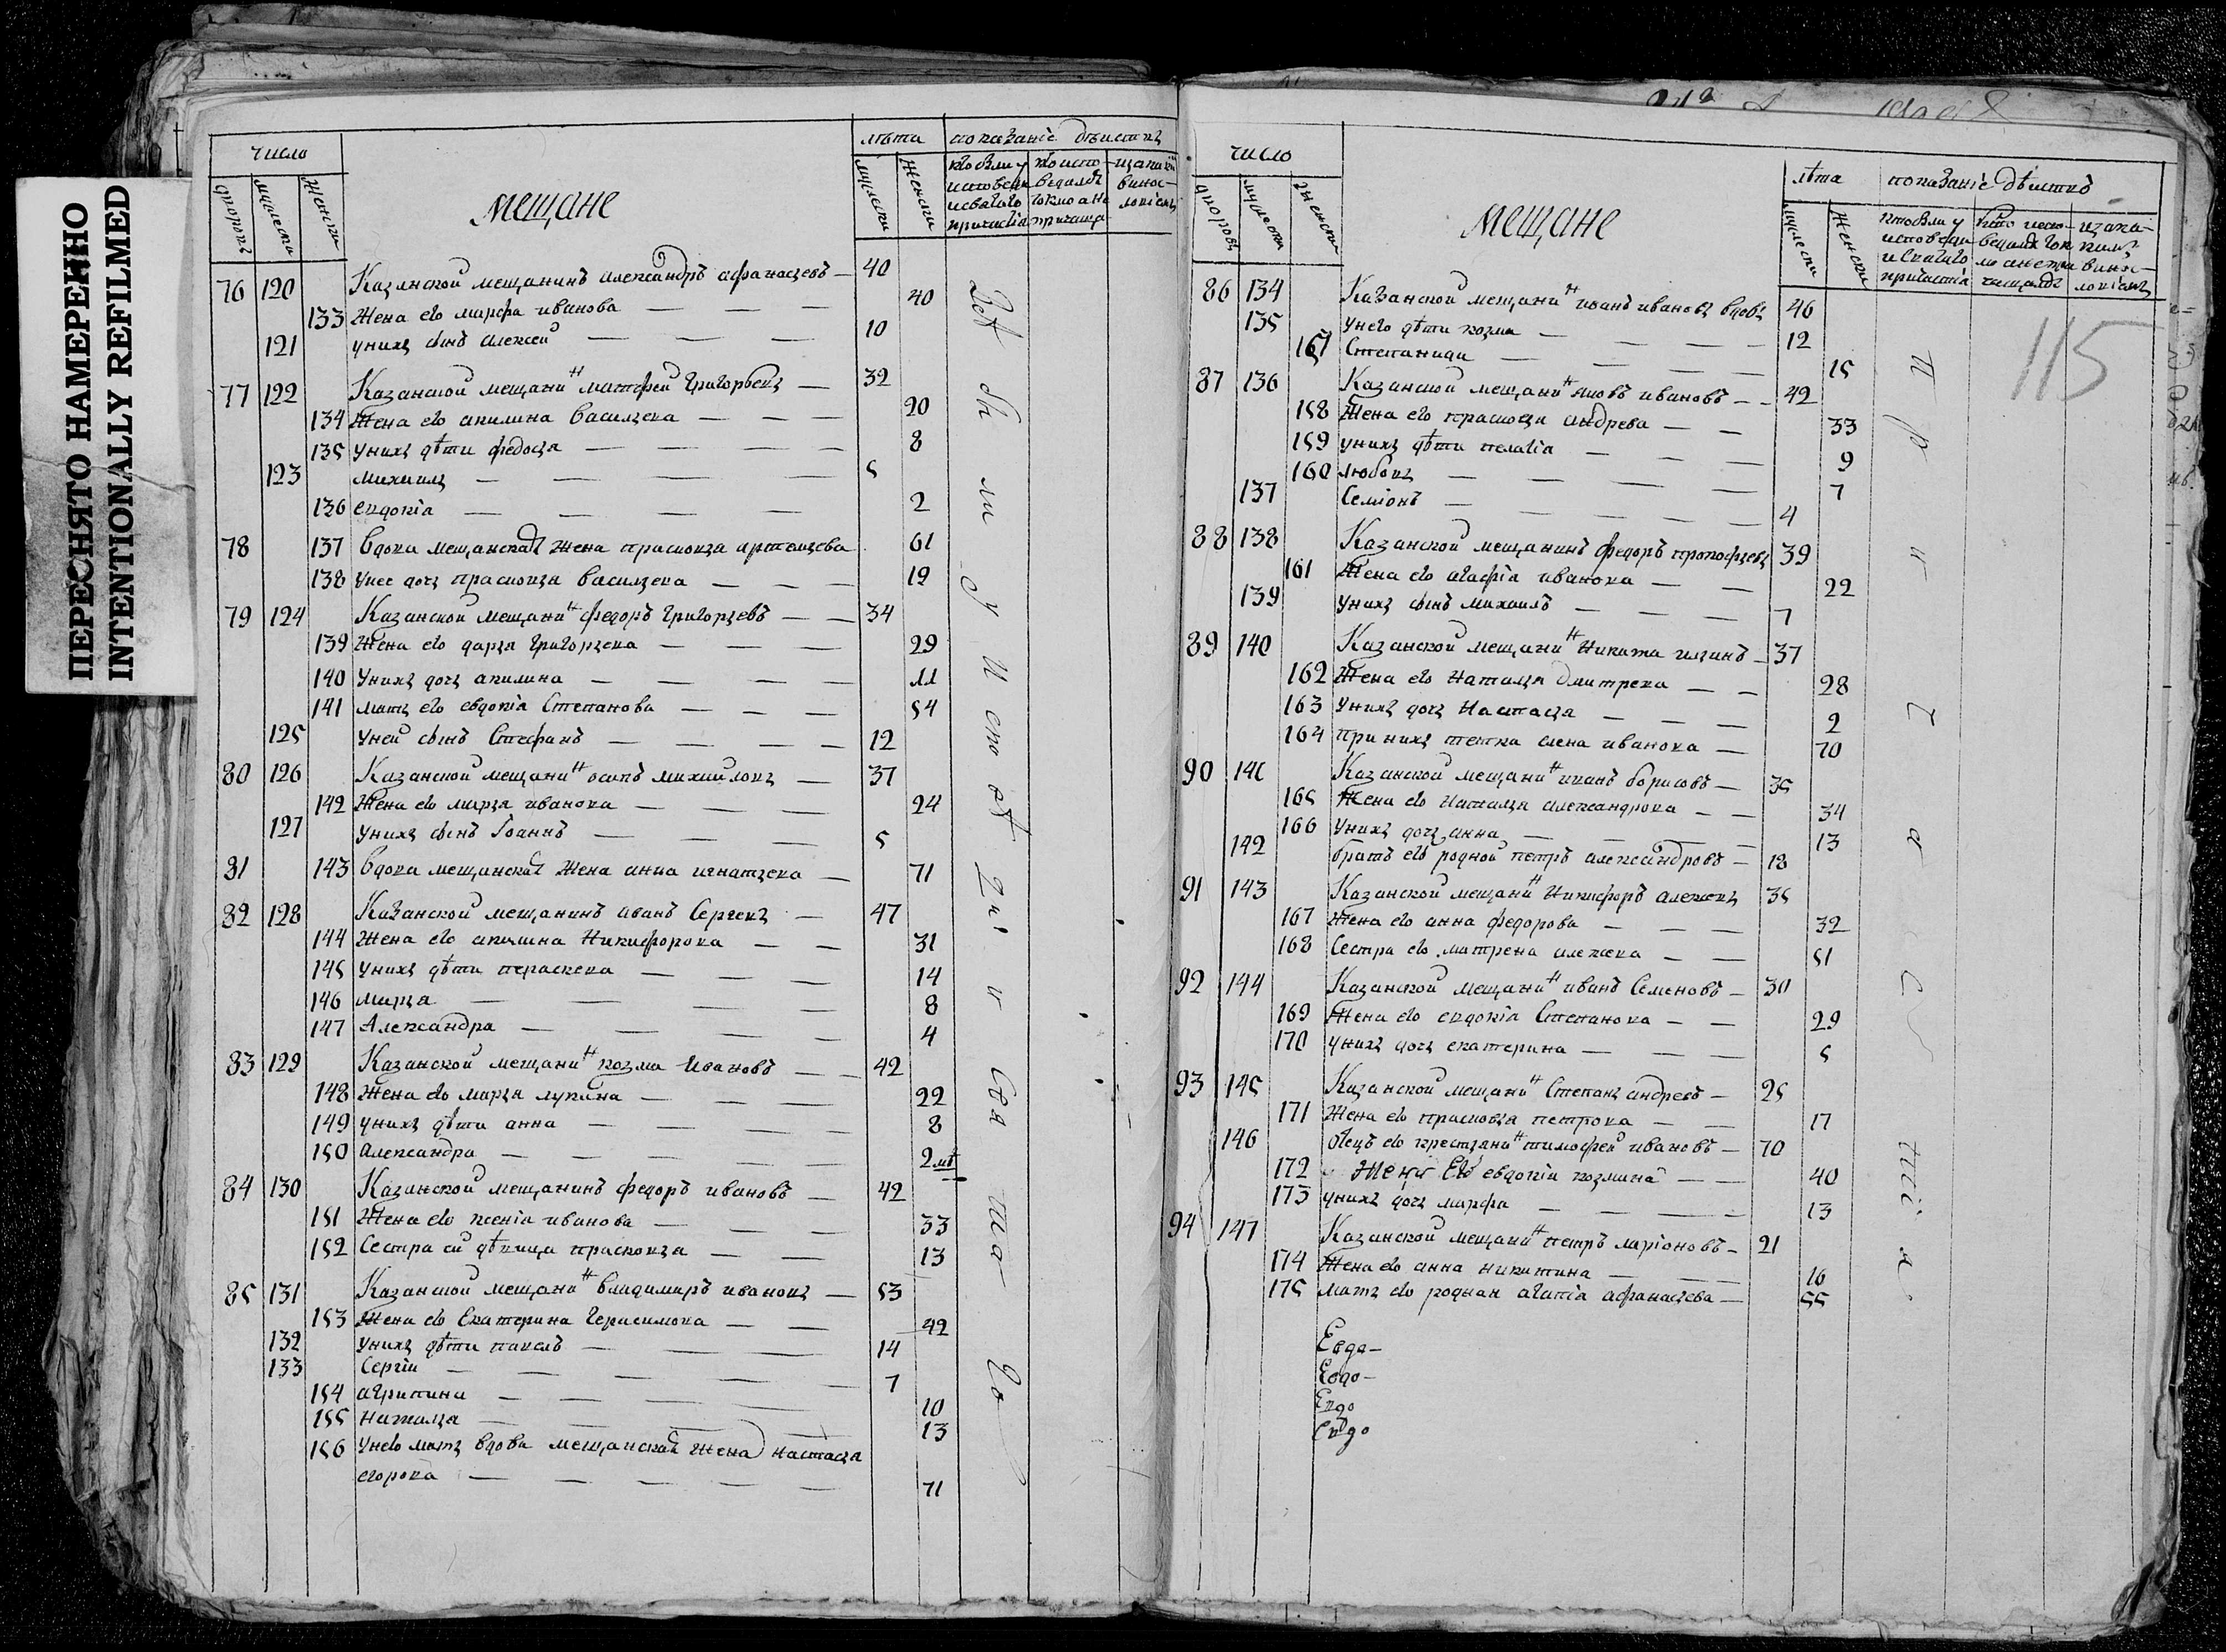 ПЕРЕСНЯТО НАМЕРЕННО
INTENTIONALLY REFILMED
число
дворовъ
мужеска
женска
мещане
лѣта
мужеска
женска
показаніе дѣиствъ
76 120 Казанской мещанинъ александръ афанасьевъ — 40
133 Жена его марфа иванова — — — 40
121 унихъ сынъ алексей — — — 10
77 122 Казанской мещанинъ матфей григорьевъ — 32
134 Жена его акилина василзева — — — 20
135 унихъ дѣти федосья — — — 8
123 михаилъ — — — 5
136 евдокіа — — — 2
78 137 вдова мещанская жена прасковья артемьева 61
138 унее дочь прасковья васильева — — — 19
79 124 Казанской мещанинъ федоръ григорьевъ — — 34
139 Жена его дарья григорьева — — — 29
140 унихъ дочь акилина — — — 11
141 мать его евдокіа Степанова — — — 54
125 уней сынъ Стефанъ — — — 12
80 126 Казанской мещанинъ осипъ михайловъ — 37
142 Жена его марья иванова — — — 24
127 унихъ сынъ Іоаннъ — — — 5
81 143 вдова мещанская жена анна игнатьева — 71
82 128 Казанской мещанинъ иванъ Сергеевъ — 47
144 Жена его акилина Никифорова — — 31
145 унихъ дѣти параскева — — — 14
146 марья — — — 8
147 Александра — — — 4
83 129 Казанской мещанинъ козма Ивановъ — — 42
148 Жена его марья лукина — — — 22
149 унихъ дѣти анна — — — 8
150 александра — — — 2 мѣ
84 130 Казанской мещанинъ федоръ ивановъ — 42
151 Жена его ксеніа иванова — — — 33
152 Сестра ей дѣвица прасковья — — 13
85 131 Казанской мещанинъ владимиръ ивановъ — 53
153 Жена его Екатерина Герасимова — — 42
132 унихъ дѣти павелъ — — — 14
133 Сергіи — — — 7
154 агрипина — — — 10
155 наталья — — — 13
156 унего мать вдова мещанская жена настасья
егорова — — — 71
число
дворовъ
мужеска
женска
мещане
лѣта
мужеска
женска
показаніе дѣиствъ
115
86 134 Казанской мещанинъ иванъ ивановъ вдовъ 46
135 унего дѣти козма — — — 12
157 Степанида — — — 15
87 136 Казанской мещанинъ яковъ ивановъ — — 42
158 Жена его прасковья андрева — — 33
159 унихъ дѣти пелагіа — — — 9
160 любовь — — — 7
137 Семіонъ — — — 4
88 138 Казанской мещанинъ федоръ прокофьевъ 39
161 Жена его агафіа иванова — — 22
139 унихъ сынъ михаилъ — — — 7
89 140 Казанской мещанинъ Никита ильинъ — 37
162 Жена его Наталья дмитрева — — 28
163 унихъ дочь Настасья — — — 2
164 при нихъ тетка елена иванова — 70
90 141 Казанской мещанинъ иванъ борисовъ — 35
165 Жена его наталья александрова — — 34
166 унихъ дочь анна — — — 13
142 братъ его родной петръ александровъ — 18
91 143 Казанской мещанинъ Никифоръ алексевъ 35
167 Жена его анна федорова — — — 32
168 Сестра его матрена алексева — — 51
92 144 Казанской мещанинъ иванъ Семеновъ — 30
169 Жена его евдокіа Степанова — — 29
170 унихъ дочь екатерина — — — 5
93 145 Казанской мещанинъ Степанъ андревъ — 25
171 Жена его прасковья петрова — — 17
146 отецъ его крестьянинъ тимофей ивановъ — 70
172 Жена Его евдокіа козмина — — 40
173 унихъ дочь марфа — — — 13
94 147 Казанской мещанинъ петръ ларіоновъ — 21
174 Жена его анна никитина — — — 16
175 мать его родная агапіа афанасьева — 55
Евдо—
Еодо—
Евдо
Евдо